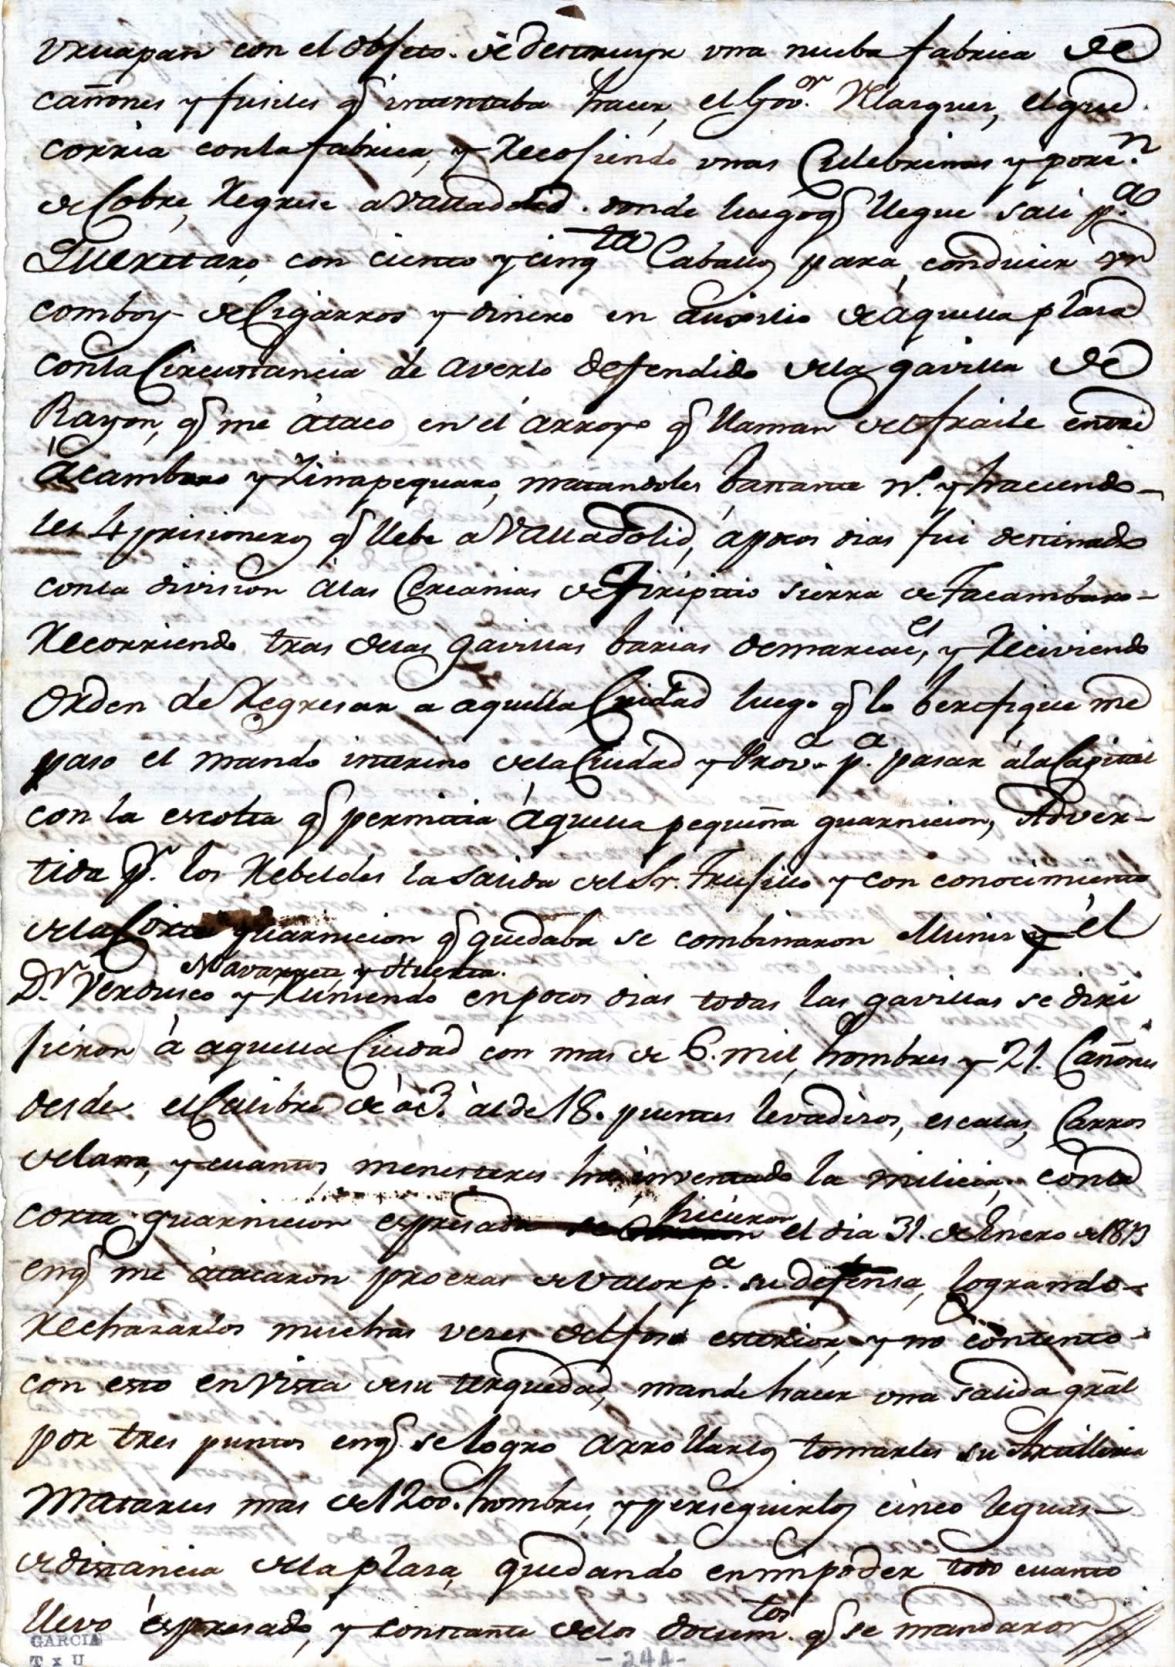 Vruapan con el objeto. de destruyr vna nueba fabrica de
cañones y fusiles q̃ intentaba hacer, el Gov.or Velasquez, el que
corria con la fabrica, y Recojiendo vnas Culebrinas y porc.n
de Cobre, Regrese a Valladolid. donde luego q̃ llegue sali p.a
Queretaro, con ciento y cinq.ta Caballos para, conducir vn
comboy de Cigarros y dinero en ausilio de aquella plasa
con la Circustancia de averlo defendido de la gavilla de
Rayon, q̃ me átaco en el arroyo q̃ llaman del fraile entre
ácambaro y Zinapequaro, matandoles bastante n.o y haciendo-
les 4 prisioneros q̃ llebe a Valladolid, á pocos dias fui destinado
con la division á las Cercanias de Tiripitio sierra de Tacambaro-
Recorriendo tras de las gavillas barias demarcac.es, y Reciviendo
Orden de Regresar a aquella Ciudad luego q̃ lo berifique me
paso el mando interino de la Ciudad y Prov.a p.a pasar á la Capital
con la escolta q̃ permitia áquella pequeña guarnicion, Adver-
tida p.r los Rebeldes la salida del Sr. Trujillo y con conocimiento
de la Corta guarnicion q̃ quedaba se combinaron Muñis y el
Navarrete y Huerta.
D.r Verdusco y Runiendo en pocos dias todas las gavillas se diri
jieron á aquella Ciudad con mas de 6. mil, hombres y 21. Cañones
desde. el Calibre de á 3. ál de 18. puentes levadisos, escalas, Carros
de lana, y cuantos, menesteres ha inventado la milicia, con la
corta guarnicion espresada se
hicieron
el dia 31. de Enero de 1813
en q̃ me átacaron proezas de valor p.a su defensa, logrando-
Rechasarlos muchas veces del foso esterior, y no contento
con esto en Vista de su terquedad, mande hacer vna salida grãl
por tres puntos en q̃ se logro arrollarlos tomarles su Artilleria
Matarles mas de 1200. hombres, y perseguirlos cinco leguas-
de distancia de la plasa, quedando en mi poder todo cuanto
llevo éspresado, y constante de los docum.tos q̃ se mandaron
GARCIA
- 244 -